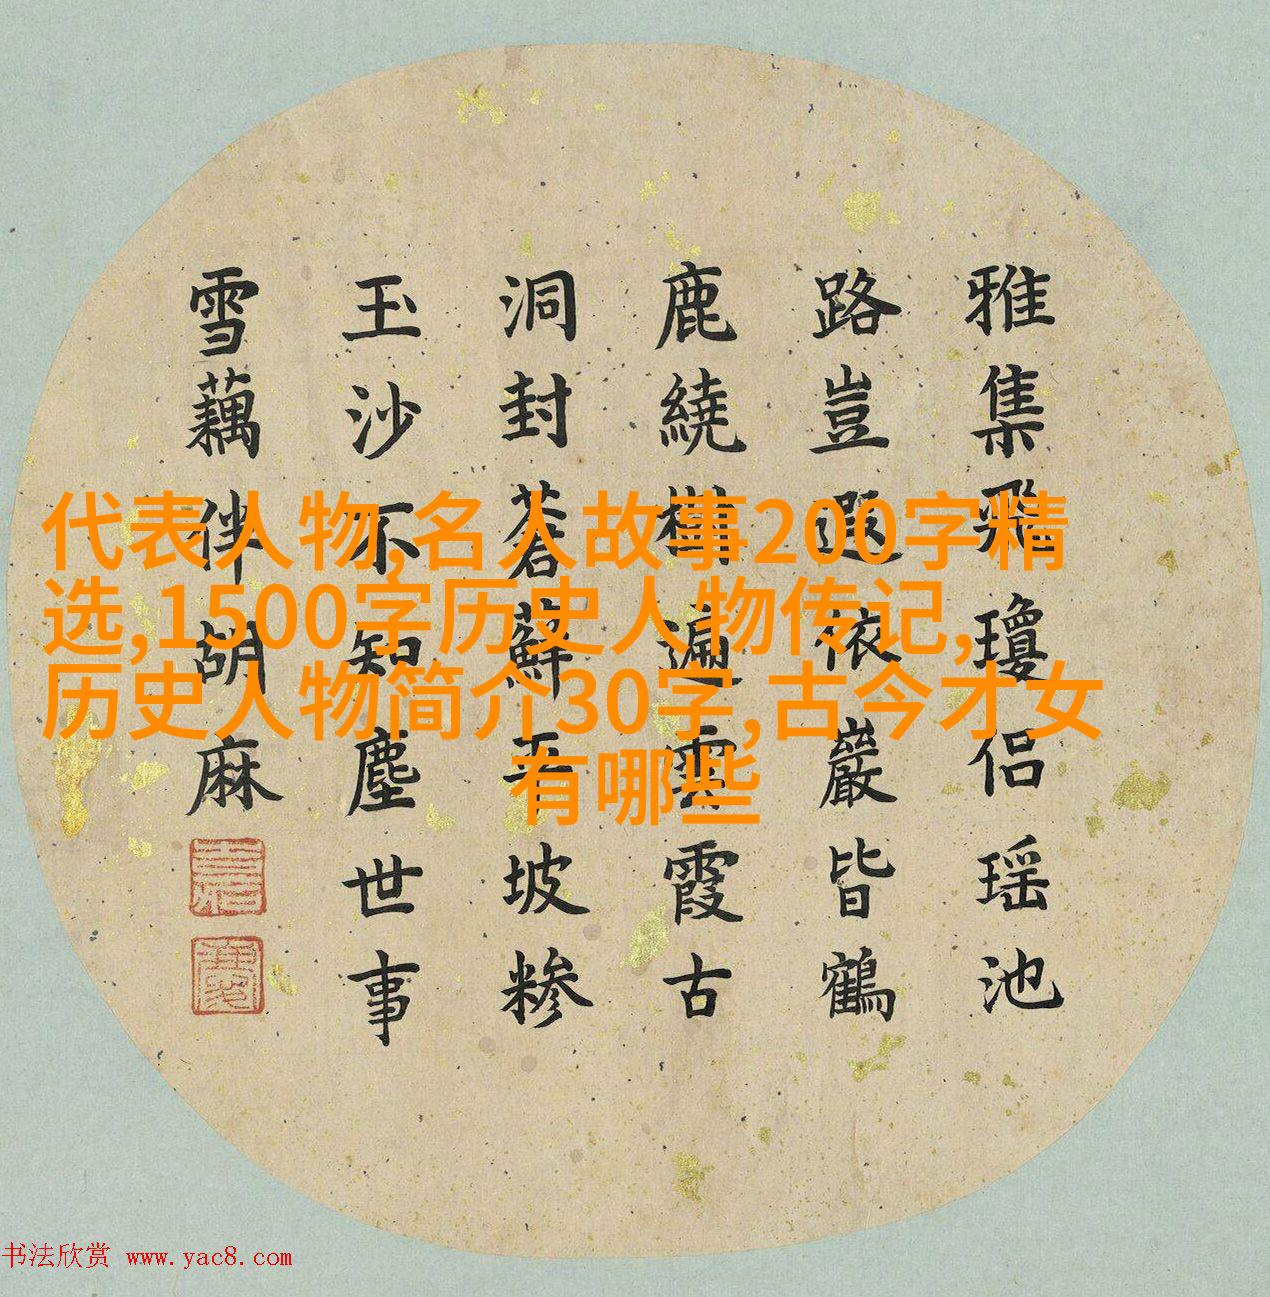 雅集飛瓊侶瑤池
路豈遐依巖皆鶴
鹿繞樹遍雲霞古
洞封蒼蘚平坡糝
玉沙不知塵世事
雪藕伴胡麻
代表人物,名人故事200字精
选,1500字历史人物传记,
历史人物简介30字,古今才女
有哪些
书法欣赏 www.yac8.com